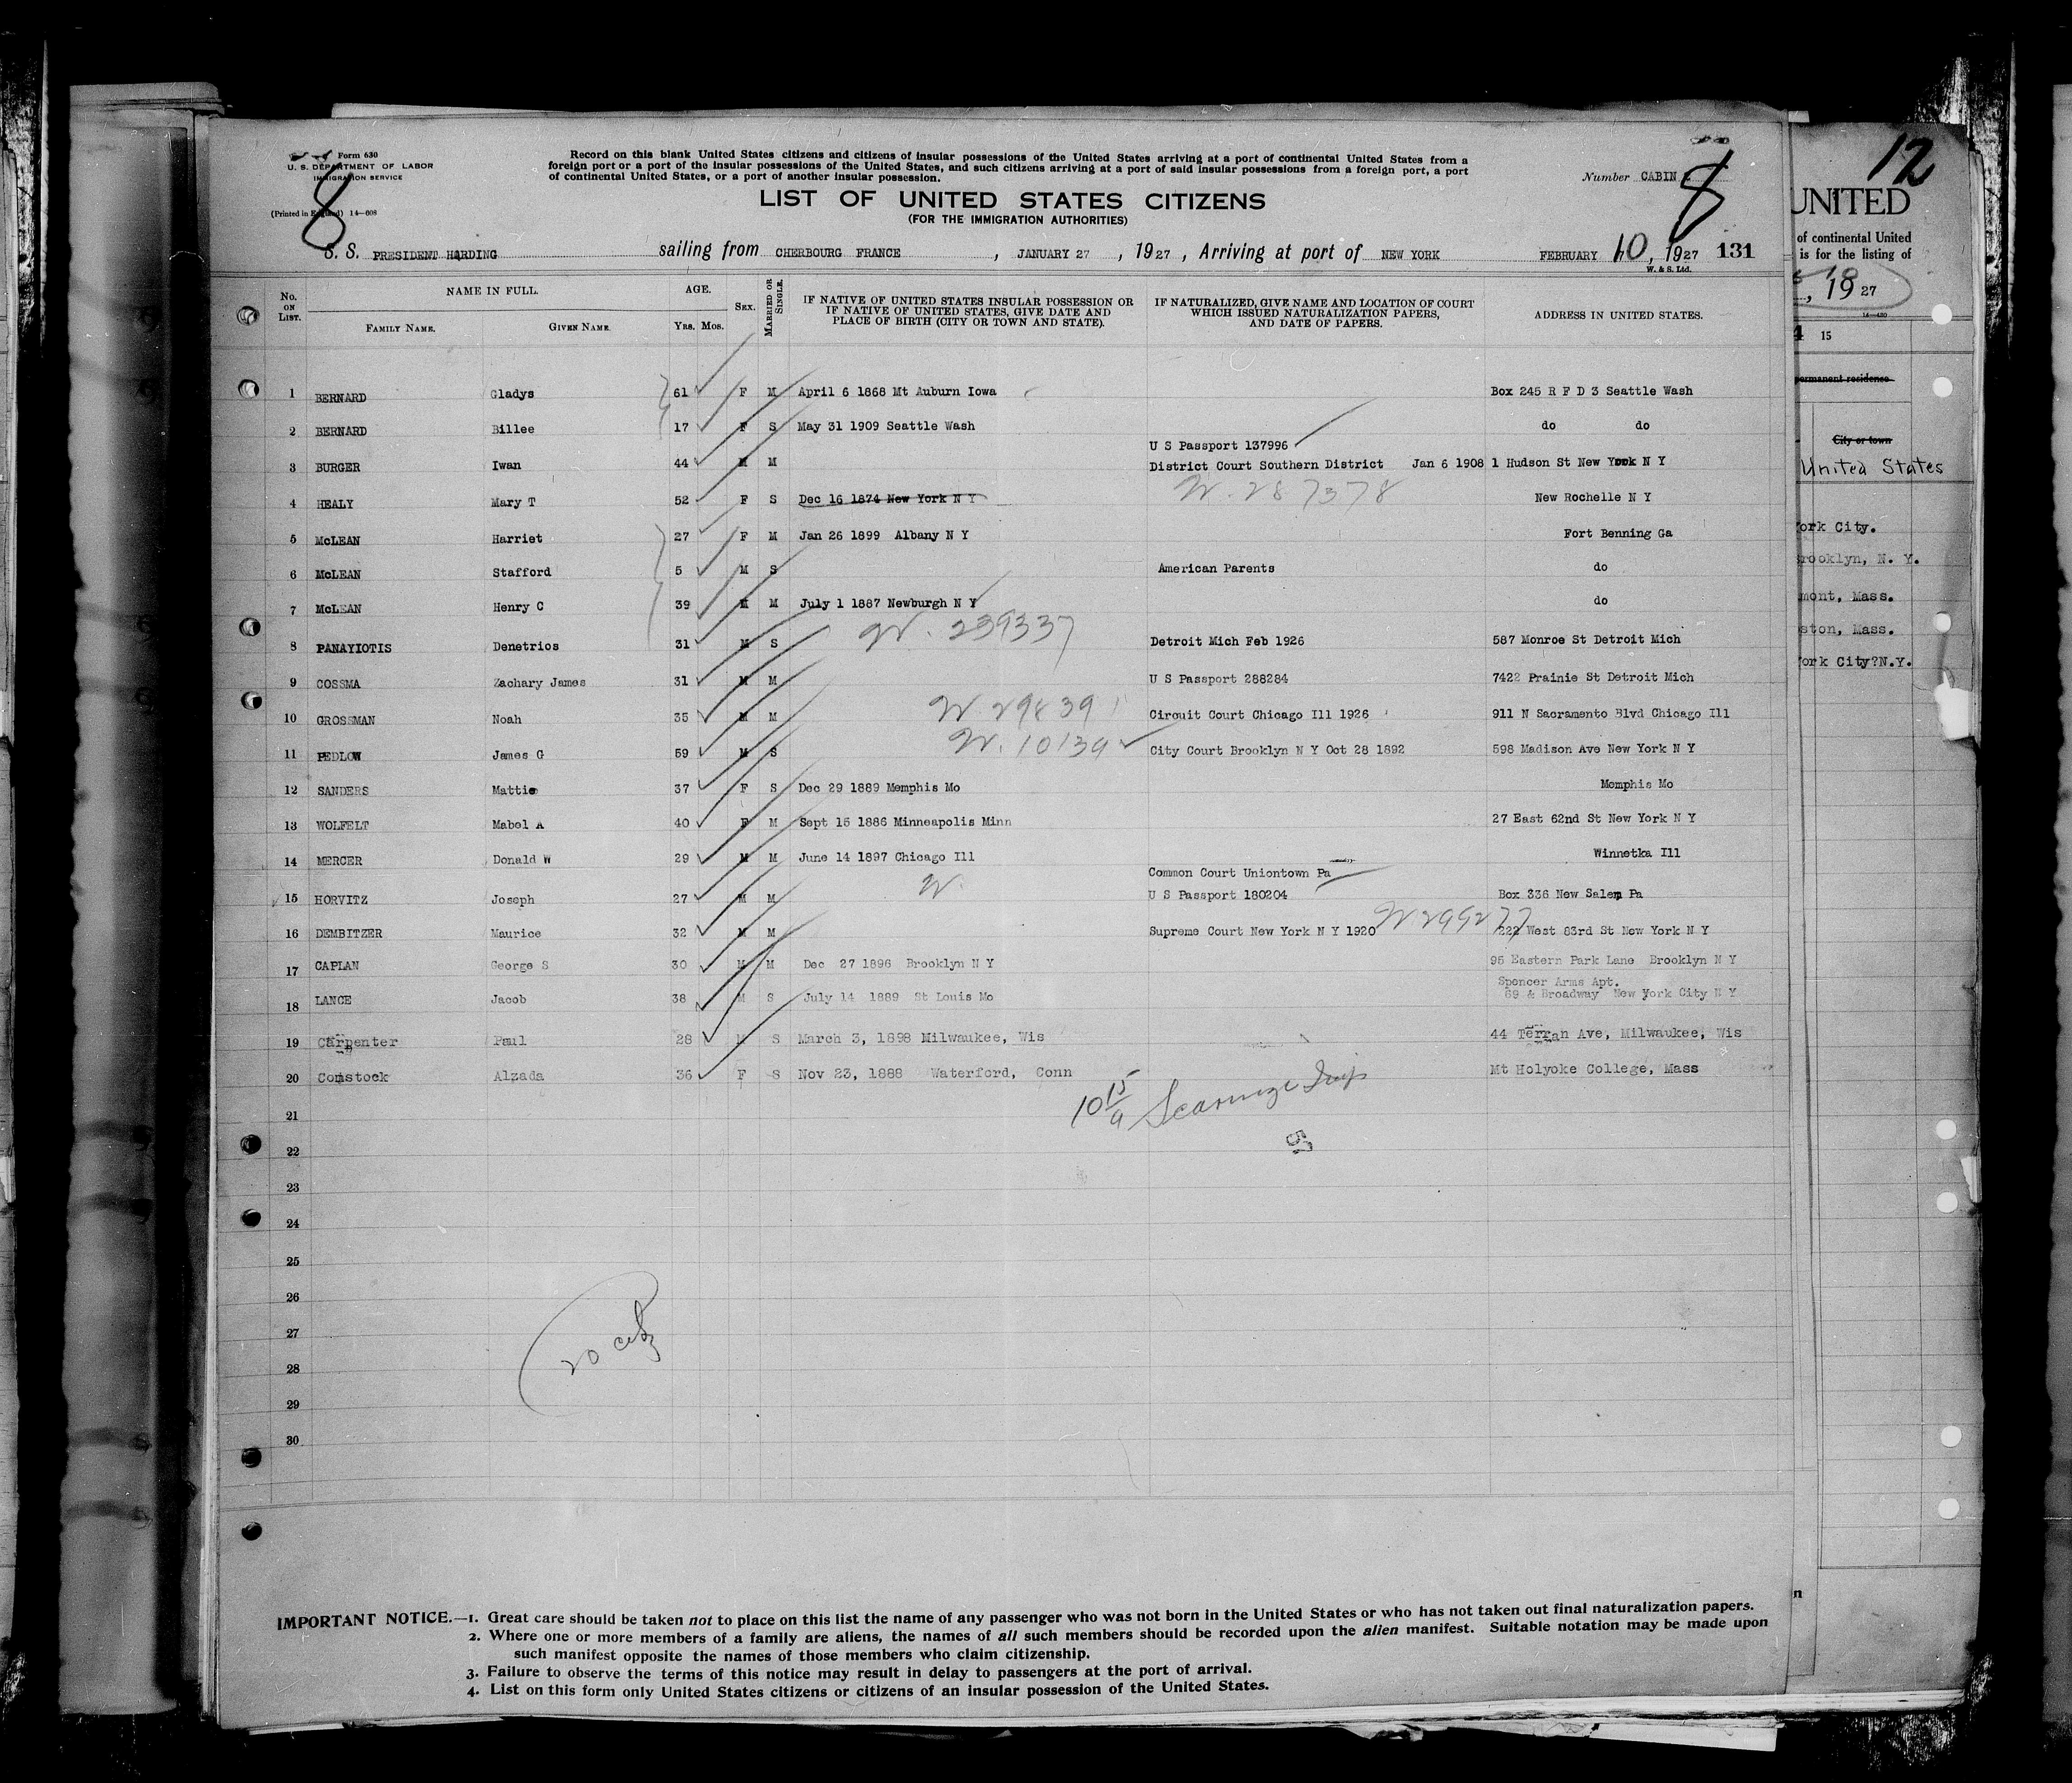 Form 630
U. S. DEPARTMENT OF LABOR
IMMIGRATION SERVICE
(Printed in England) 14—608
8
Record on this blank United States citizens and citizens of insular possessions of the United States arriving at a port of continental United States from a
foreign port or a port of the insular possessions of the United States, and such citizens arriving at a port of said insular possessions from a foreign port, a port
of continental United States, or a port of another insular possession.
LIST OF UNITED STATES CITIZENS
(FOR THE IMMIGRATION AUTHORITIES)
Number CABIN
8
S. S. PRESIDENT HARDING sailing from CHERBOURG FRANCE, JANUARY 27, 1927, Arriving at port of NEW YORK FEBRUARY 10, 1927 131
W. & S. Ltd.
No. ON LIST. NAME IN FULL. FAMILY NAME. GIVEN NAME. AGE. YRS. MOS. SEX. MARRIED OR SINGLE.
IF NATIVE OF UNITED STATES INSULAR POSSESSION OR
IF NATIVE OF UNITED STATES, GIVE DATE AND
PLACE OF BIRTH (CITY OR TOWN AND STATE).
IF NATURALIZED, GIVE NAME AND LOCATION OF COURT
WHICH ISSUED NATURALIZATION PAPERS,
AND DATE OF PAPERS.
ADDRESS IN UNITED STATES.
1 BERNARD Gladys 61 F M April 6 1868 Mt Auburn Iowa Box 245 R F D 3 Seattle Wash
2 BERNARD Billee 17 F S May 31 1909 Seattle Wash do do
U S Passport 137996
3 BURGER Iwan 44 M M District Court Southern District Jan 6 1908 1 Hudson St New York N Y
4 HEALY Mary T 52 F S Dec 16 1874 New York N Y W. 287378 New Rochelle N Y
5 McLEAN Harriet 27 F M Jan 26 1899 Albany N Y Fort Benning Ga
6 McLEAN Stafford 5 M S American Parents do
7 McLEAN Henry C 39 M M July 1 1887 Newburgh N Y do
W. 239337
8 PANAYIOTIS Denetrios 31 M S Detroit Mich Feb 1926 587 Monroe St Detroit Mich
9 COSSMA Zachary James 31 M M U S Passport 288284 7422 Prainie St Detroit Mich
10 GROSSMAN Noah 35 M M W. 298391 Circuit Court Chicago Ill 1926 911 N Sacramento Blvd Chicago Ill
11 PEDLOW James G 59 M S W. 10139 City Court Brooklyn N Y Oct 28 1892 598 Madison Ave New York N Y
12 SANDERS Mattie 37 F S Dec 29 1889 Memphis Mo Memphis Mo
13 WOLFELT Mabel A 40 F M Sept 15 1886 Minneapolis Minn 27 East 62nd St New York N Y
14 MERCER Donald W 29 M M June 14 1897 Chicago Ill Winnetka Ill
Common Court Uniontown Pa
15 HORVITZ Joseph 27 M M W. U S Passport 180204 Box 336 New Salem Pa
16 DEMBITZER Maurice 32 M M Supreme Court New York N Y 1920 W 299277 222 West 83rd St New York N Y
17 CAPLAN George S 30 M M Dec 27 1896 Brooklyn N Y 95 Eastern Park Lane Brooklyn N Y
Spencer Arms Apt.
18 LANCE Jacob 38 M S July 14 1889 St Louis Mo 69 & Broadway New York City N Y
19 Carpenter Paul 28 M S March 3, 1898 Milwaukee, Wis 44 Terran Ave, Milwaukee, Wis
20 Comstock Alzada 36 F S Nov 23, 1888 Waterford, Conn Mt Holyoke College, Mass
10 15/9
21
22
23
24
25
26
27
28
29
30
20
IMPORTANT NOTICE.—1. Great care should be taken not to place on this list the name of any passenger who was not born in the United States or who has not taken out final naturalization papers.
2. Where one or more members of a family are aliens, the names of all such members should be recorded upon the alien manifest. Suitable notation may be made upon
such manifest opposite the names of those members who claim citizenship.
3. Failure to observe the terms of this notice may result in delay to passengers at the port of arrival.
4. List on this form only United States citizens or citizens of an insular possession of the United States.
12
UNITED
of continental United
is for the listing of
, 1927
14—430
15
permanent residence
City or town
United States
ork City.
rooklyn, N. Y.
mont, Mass.
ston, Mass.
ork City?N.Y.
n